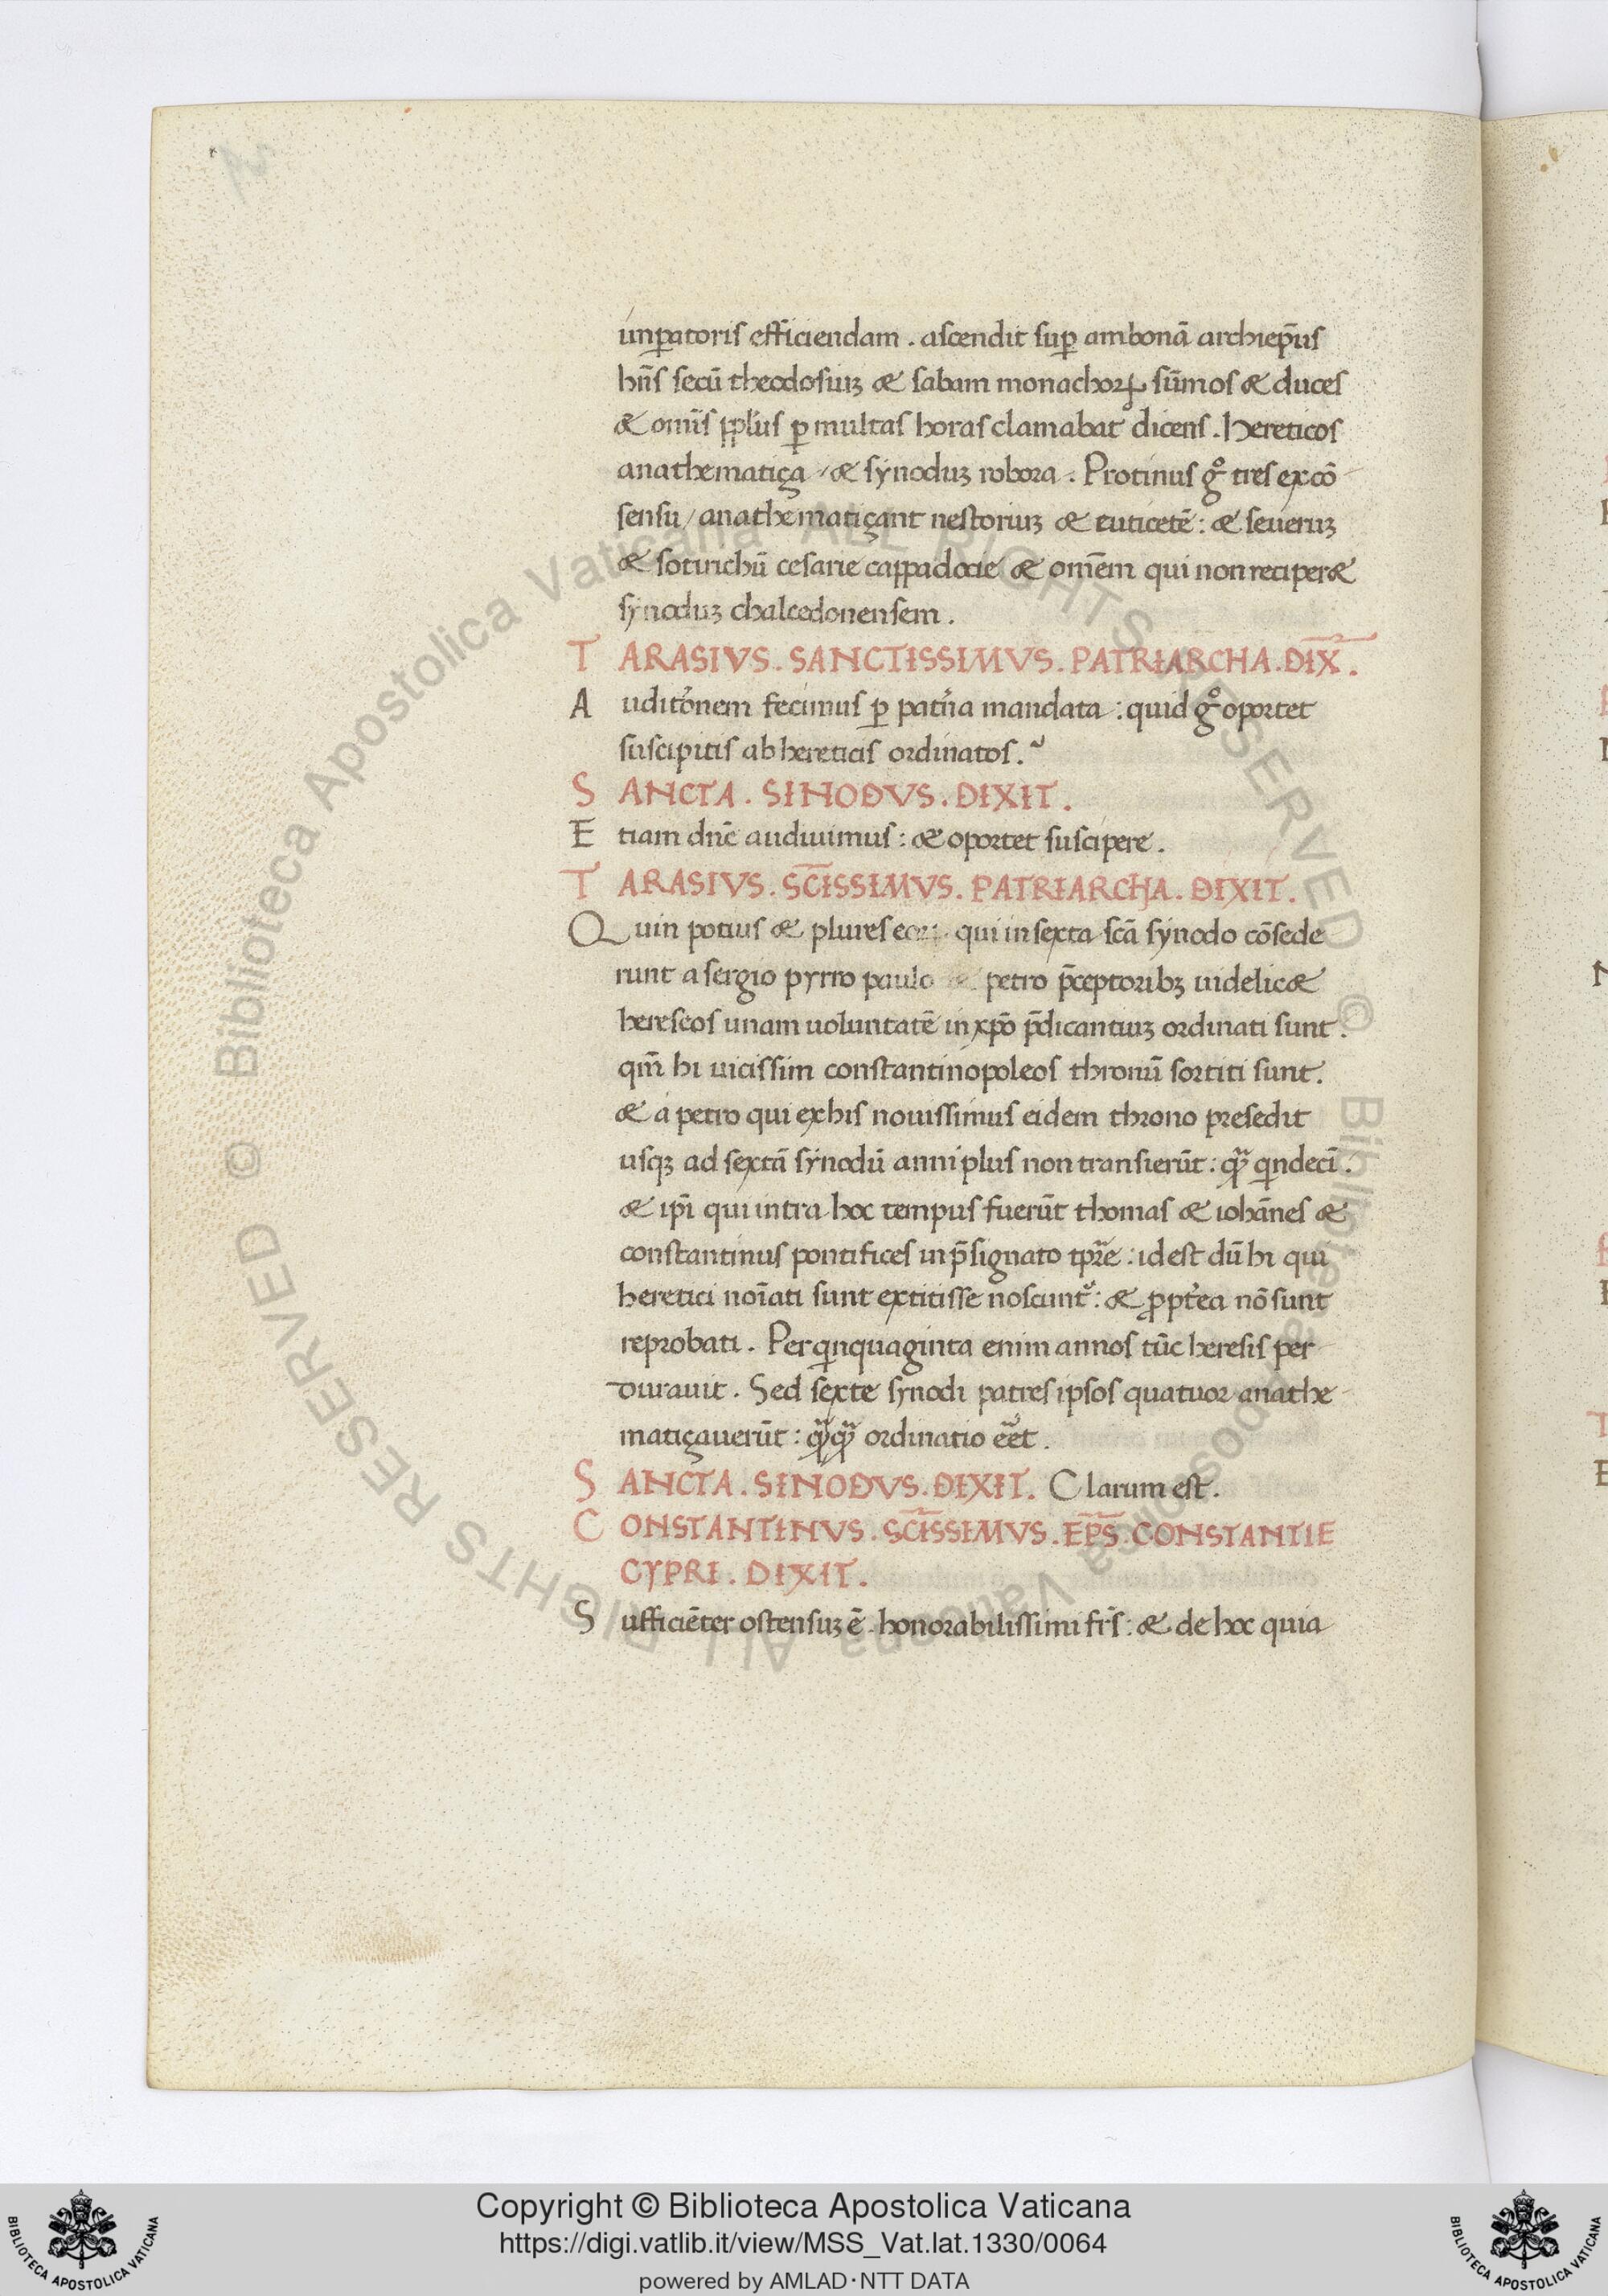 imꝑatoris efficiendam . ascendit suꝑ ambonā archiep̄us
hn̄s secū theodosiuꝫ & sabam monachoꝝ sūmos & duces
& omīs pplūs ꝑ multas horas clamabat dicens . hereticos
anathematiça / & synoduꝫ robora . Protinus gͦ tres ex cō
sensu / anathematiçant nestoriuꝫ & euticetē : & seueruꝫ
& sotirichū cesarie cappadocie & om̄em qui non reciper&
synoduꝫ chalcedonensem .
TARASIVS . SANCTISSIMVS . PATRIARCHA . DIX̄ .
Auditōnem fecimus ꝑ patr̄na mandata : quid gͦ oportet
suscipitis ab hereticis ordinatos .
SANCTA . SINODVS . DIXIT .
Etiam dn̄e audiuimus : & oportet suscipere .
TARASIVS . SC̄ISSIMVS . PATRIARCHA . DIXIT .
Quin potius & plures eoꝝ qui in sexta sc̄a synodo cōsede
runt a sergio pyrro paulo & petro p̄ceptoribꝫ uidelic&
hereseos unam uoluntatē in xp̄o p̄dicantiuꝫ ordinati sunt .
qm̄ hi uicissim constantinopoleos thronū sortiti sunt .
& a petro qui ex his nouissimus eidem throno presedit
usqꝫ ad sextā synodū anni plus non transierūt : qᷓ qindecī .
& ip̄i qui intra hoc tempus fuerūt thomas & iohānes &
constantinus pontifices in p̄signato tp̄re : id est dū hi qui
heretici noīati sunt extitisse noscunt᷑ : & ꝓpt̄ea nō sunt
reprobati . Per qinquaginta enim annos tūc heresis per
durauit . Sed sexte synodi patres ipsos quatuor anathe
matiçauerūt : qᷓqᷓ ordinatio eēt .
SANCTA . SINODVS . DIXIT . Clarum est .
CONSTANTINVS . SC̄ISSIMVS . EP̄S . CONSTANTIE
CYPRI . DIXIT .
Sufficiēter ostensuꝫ ē . honorabilissimi fr̄s : & de hoc quia
Copyright © Biblioteca Apostolica Vaticana
https://digi.vatlib.it/view/MSS_Vat.lat.1330/0064
powered by AMLAD·NTT DATA